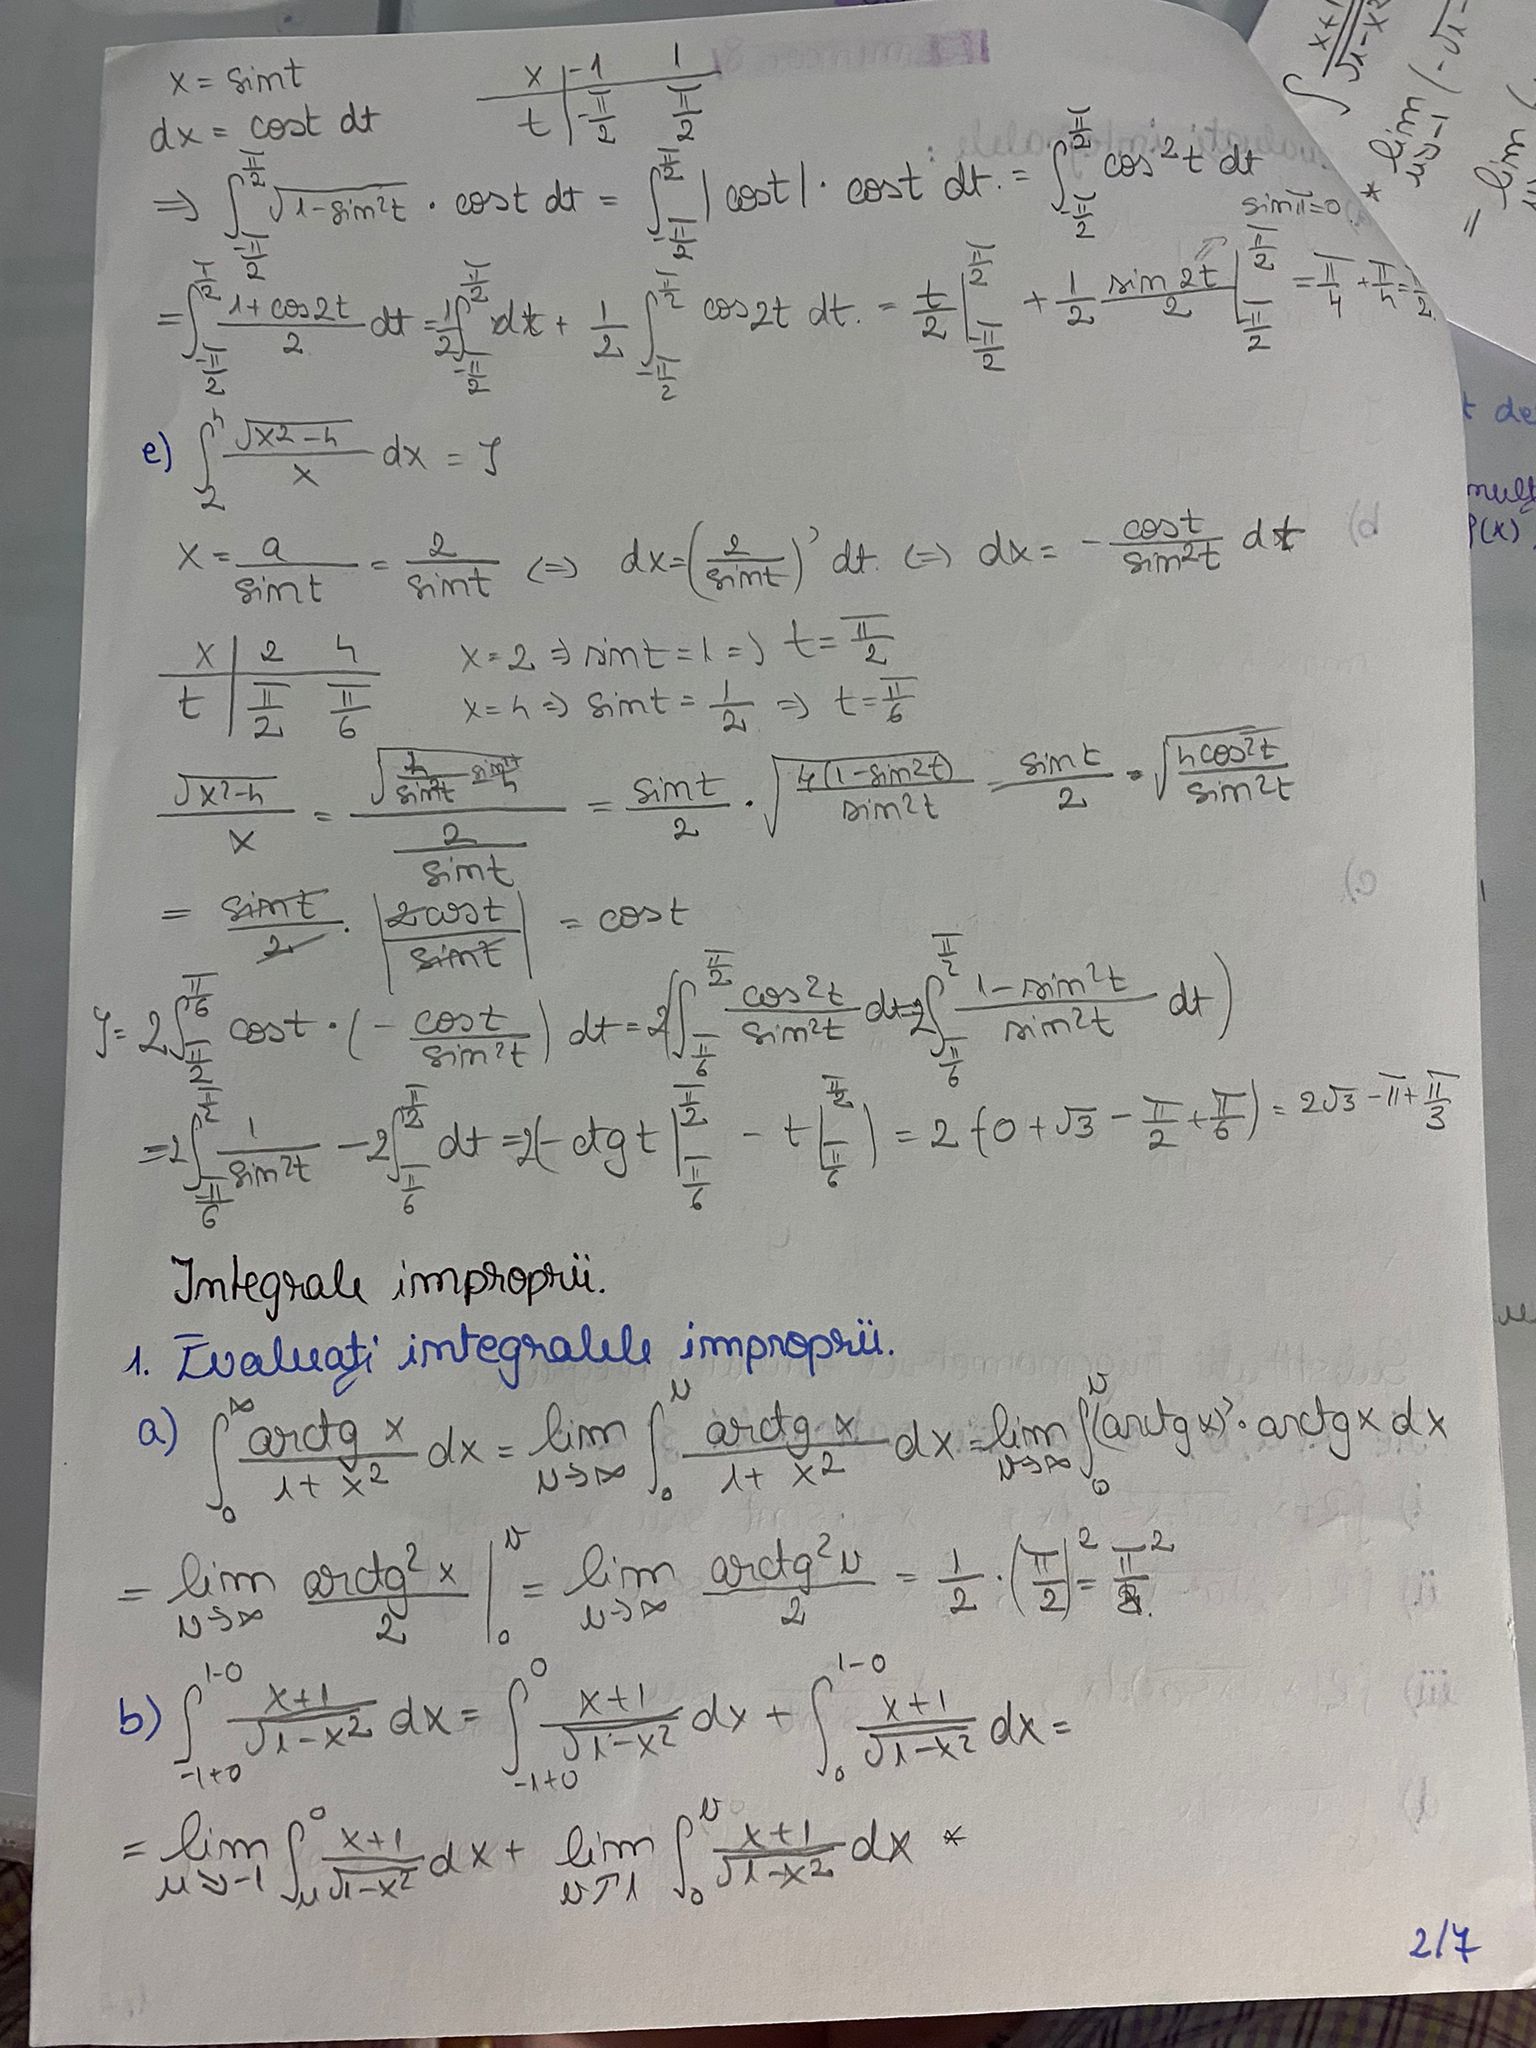 x = sint
x | -1 1
dx = cost dt
t | -π/2 π/2
=> ∫_{-π/2}^{π/2} √(1-sin²t) · cost dt = ∫_{-π/2}^{π/2} |cost| · cost dt. = ∫_{-π/2}^{π/2} cos²t dt
sinπ=0.
= ∫_{-π/2}^{π/2} (1+cos2t)/2 dt = 1/2 ∫_{-π/2}^{π/2} dt + 1/2 ∫_{-π/2}^{π/2} cos2t dt. = t/2 |_{-π/2}^{π/2} + 1/2 sin2t/2 |_{-π/2}^{π/2} = π/4 + π/4 = π/2.
e) ∫_2^4 √(x²-4)/x dx = J
x = a/sint = 2/sint (=) dx = (2/sint)' dt. (=) dx = - cost/sin²t dt
x | 2 4
t | π/2 π/6
x=2 => sint = 1 => t = π/2
x=4 => sint = 1/2 => t = π/6
√(x²-4)/x = √(4/sin²t - sin²t/4)/(2/sint) = sint/2 · √(4(1-sin²t)/sin²t) = sint/2 · √(4cos²t/sin²t)
= sint/2 · |2cost/sint| = cost
J = 2∫_{π/2}^{π/6} cost · (- cost/sin²t) dt = 2(∫_{π/6}^{π/2} cos²t/sin²t dt = 2∫_{π/6}^{π/2} (1-sin²t)/sin²t dt)
= 2∫_{π/6}^{π/2} 1/sin²t - 2∫_{π/6}^{π/2} dt = 2(-ctg t |_{π/6}^{π/2} - t |_{π/6}^{π/2}) = 2(-0 + √3 - π/2 + π/6) = 2√3 - π + π/3
Integrale improprii.
1. Evaluați integralele improprii.
a) ∫_0^∞ arctg x/(1+x²) dx = lim_{v→∞} ∫_0^v arctg x/(1+x²) dx = lim_{v→∞} ∫_0^v (arctgx)' · arctgx dx
= lim_{v→∞} arctg²x/2 |_0^v = lim_{v→∞} arctg²v/2 = 1/2 · (π/2)² = π²/8.
b) ∫_{-1+0}^{1-0} (x+1)/√(1-x²) dx = ∫_{-1+0}^0 (x+1)/√(1-x²) dx + ∫_0^{1-0} (x+1)/√(1-x²) dx =
= lim_{u↘-1} ∫_u^0 (x+1)/√(1-x²) dx + lim_{v↗1} ∫_0^v (x+1)/√(1-x²) dx *
2/7